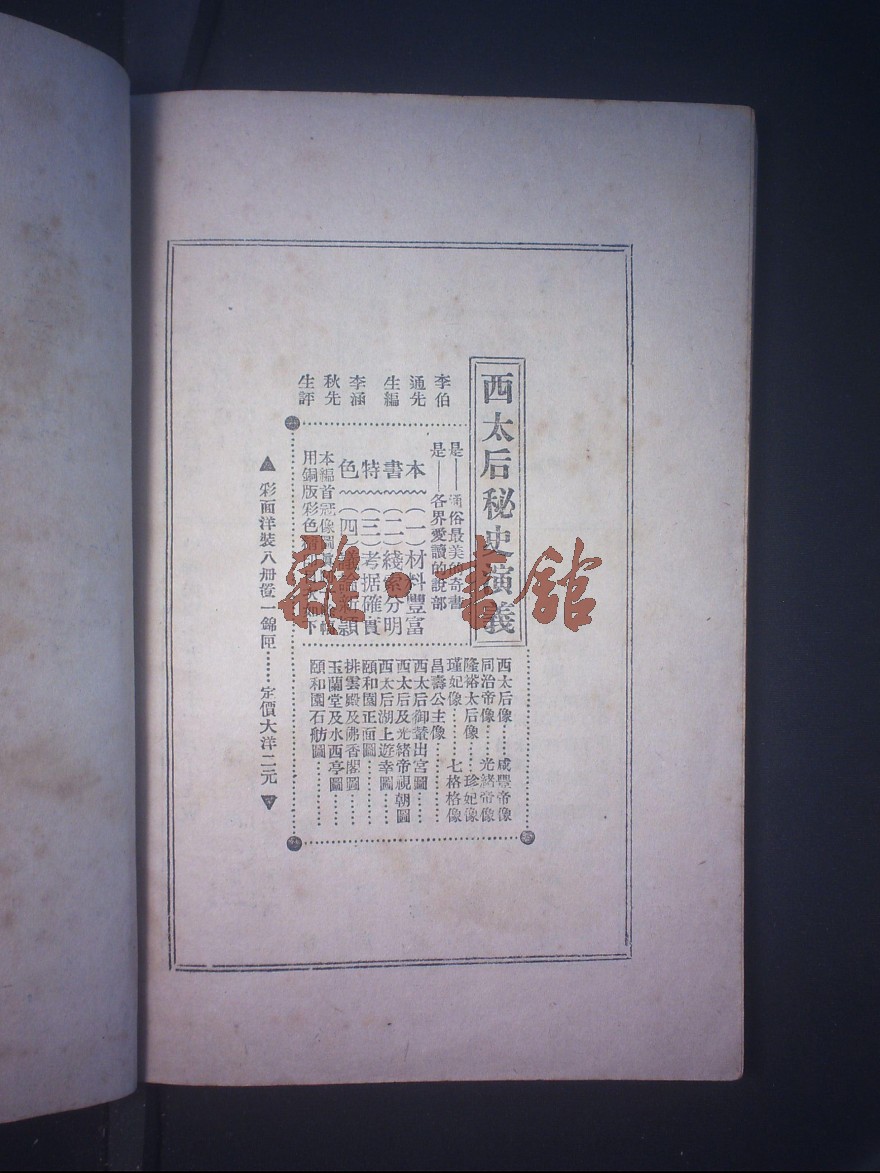 西太后秘史演義
李伯
通先
生編
李涵
秋先
生評
是——通俗最美的奇書
是——各界愛讀的說部
本書特色
(一)材料豐富
(二)綫索分明
(三)考据確實
(四)議論新穎
本編首冠像圖
用銅版彩色精印
西太后像……咸豐帝像
同治帝像……光緒帝像
隆裕太后像……珍妃像
瑾妃像……七格格像
昌壽公主像……
西太后御輦出宮圖……
西太后及光緒帝視朝圖
西太后湖上遊幸圖……
頤和園正面圖……
排雲殿及佛香閣圖……
玉蘭堂及水西亭圖……
頤和園石舫圖……
▲彩面洋裝八册置一錦匣……定價大洋二元▼
雜·書館